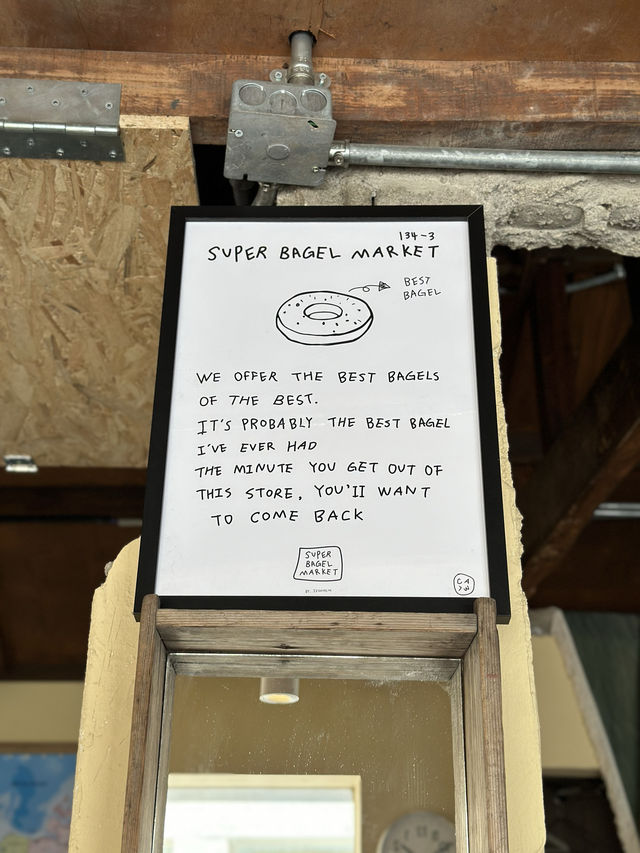 134-3
SUPER BAGEL MARKET
BEST
BAGEL
WE OFFER THE BEST BAGELS
OF THE BEST.
IT'S PROBABLY THE BEST BAGEL
I'VE EVER HAD
THE MINUTE YOU GET OUT OF
THIS STORE, YOU'II WANT
TO COME BACK
SUPER
BAGEL
MARKET